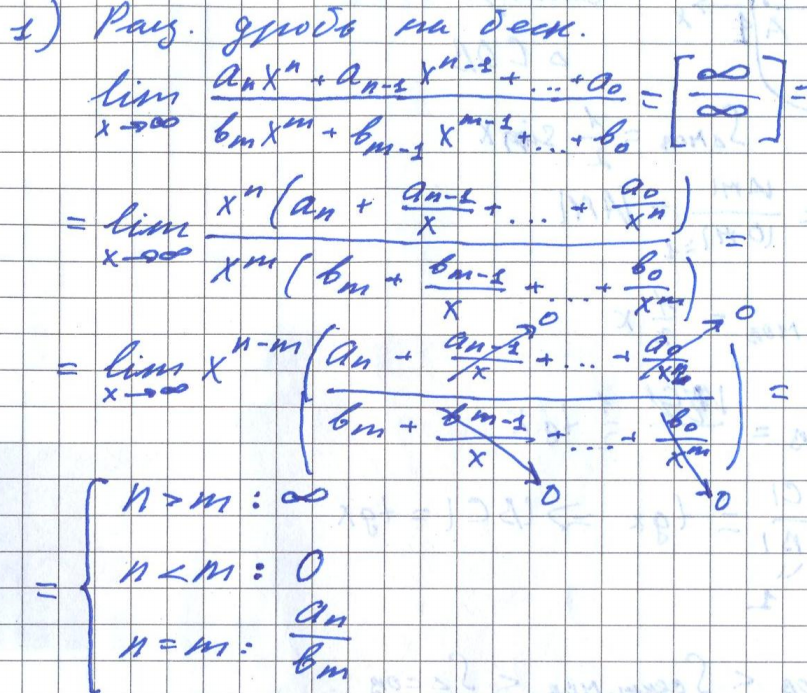 1) Рац. дробь на беск.
lim x→∞ (aₙxⁿ + aₙ₋₁xⁿ⁻¹ + ... + a₀) / (bₘxᵐ + bₘ₋₁xᵐ⁻¹ + ... + b₀) = [∞/∞] =
= lim x→∞ xⁿ(aₙ + aₙ₋₁/x + ... + a₀/xⁿ) / xᵐ(bₘ + bₘ₋₁/x + ... + b₀/xᵐ) =
= lim x→∞ xⁿ⁻ᵐ ((aₙ + aₙ₋₁/x→0 + ... + a₀/xⁿ→0) / (bₘ + bₘ₋₁/x→0 + ... + b₀/xᵐ→0)) =
= { n > m : ∞
n < m : 0
n = m : aₙ/bₘ